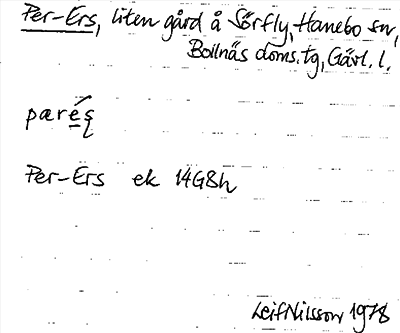 Per-Ers, liten gård å Sörfly, Hanebo sn,
Bollnäs doms.tg, Gävl. l.
pæres
Per-Ers ek 14G8h
Leif Nilsson 1978